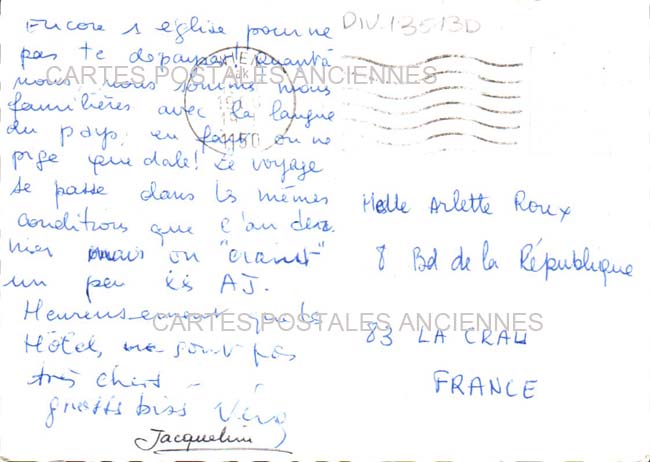 Encore 1 église pour ne
pas te dépayser! Quant à
nous, nous sommes
familières avec la langue
du pays, en fait on ne
pige que dale! Le voyage
se passe dans les mêmes
conditions que l'an der
nier mais on "craint"
un peu les AJ.
Heureusement que les
Hôtels, ne sont pas
très chers -
grosses bises Véro
Jacqueline
DIV.13513D
1150
Melle Arlette Roux
8 Bd de la République
83 LA CRAU
FRANCE
CARTES POSTALES ANCIENNES
CARTES POSTALES ANCIENNES